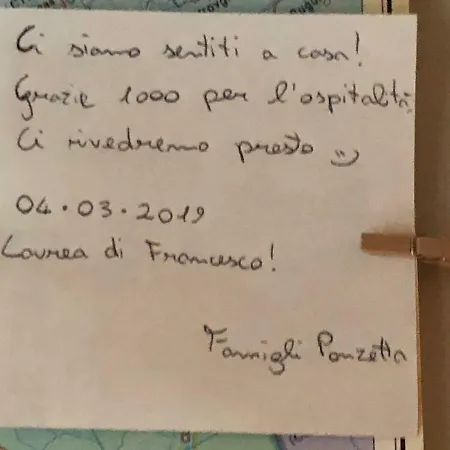 Ci siamo sentiti a casa!
Grazie 1000 per l'ospitalità
Ci rivedremo presto :)
04.03.2019
Laurea di Francesco!
Famigli Panzetta